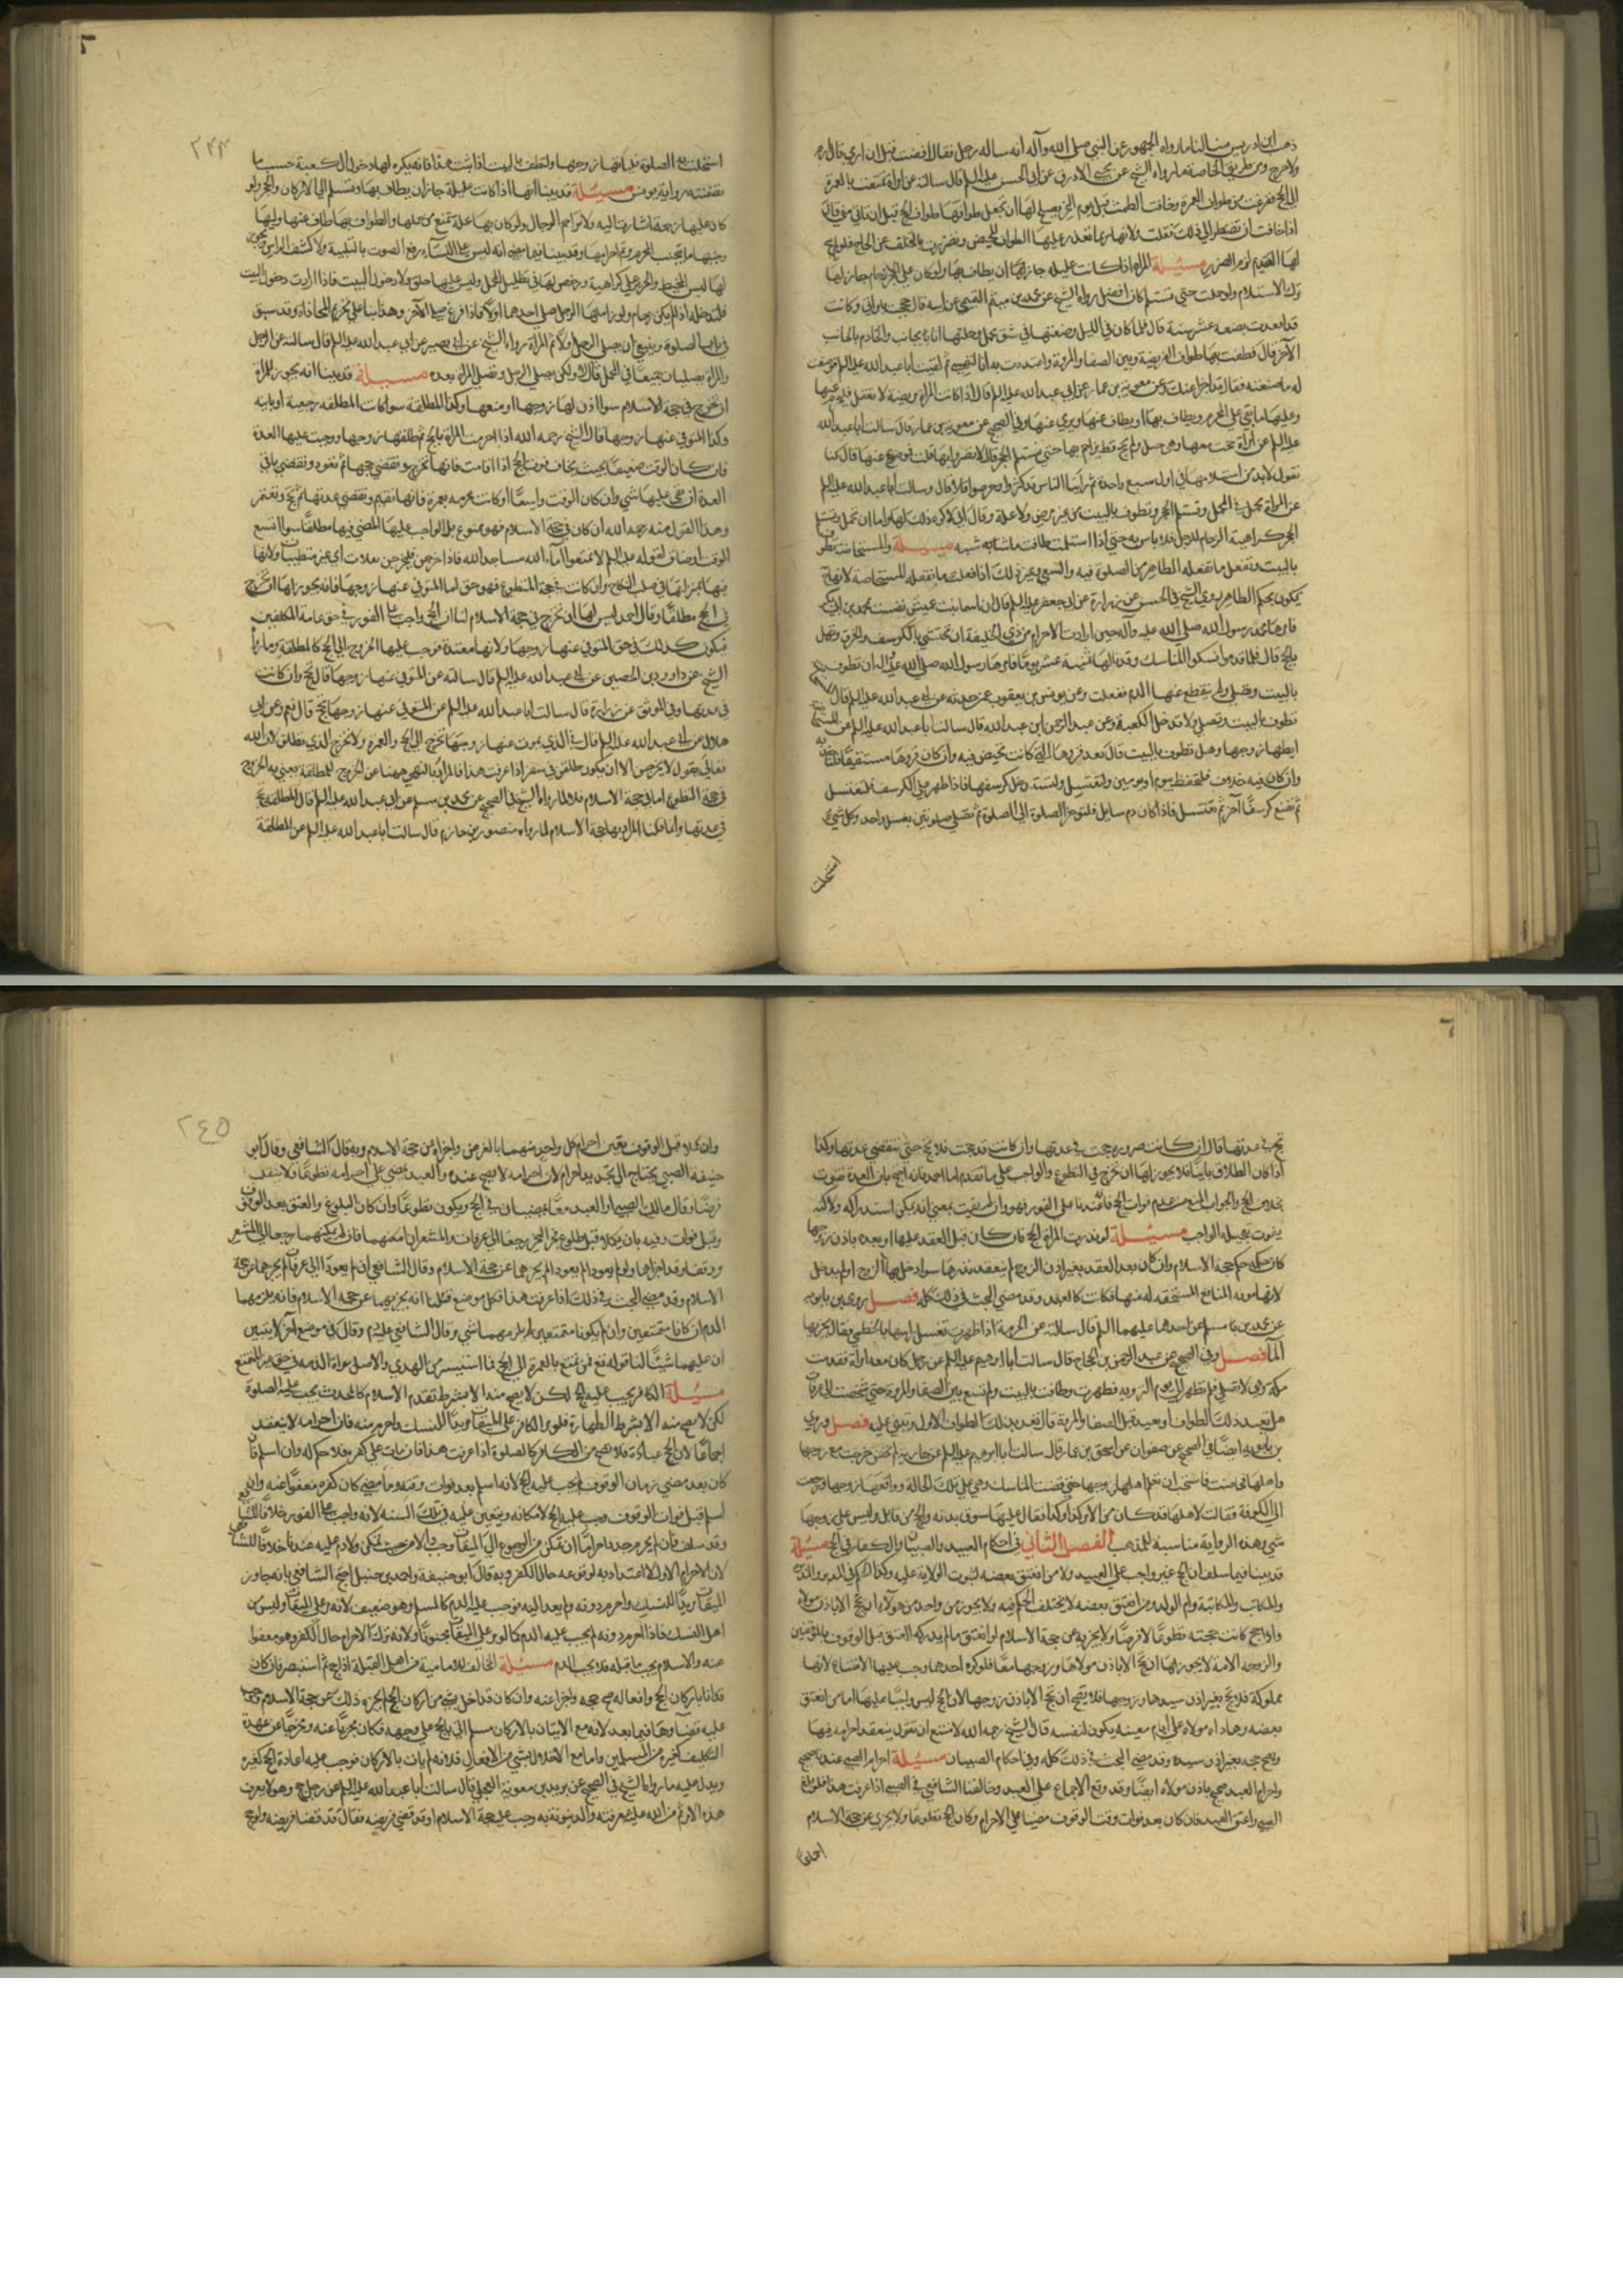 ذهب ابن ادريس منا لنا ما رواه الجمهور عن النبي صلى الله وآله انه ساله رجل فقال افضت قبل ان ارمي قال ارم
ولا حرج ومن طريق الخاصة ما رواه الشيخ عن يحيى الازرق عن ابي الحسن عليه السلم قال سالته عن امراة تمتعت بالعمرة
الى الحج ففرغت من طواف العمرة وخافت الطمث قبل يوم النحر يصلح لها ان تجعل طوافها طواف الحج قبل ان تاتي منى قال
اذا خافت ان تضطر الى ذلك فعلت ولانها ربما تعذر عليها الطواف للحيض وتضررت بالتخلف عن الحاج فلو لم يبح
لها التقديم لزم الضرر مسئلة المراة اذا كانت عليلة جاز لها ان يطاف بها ولو كان على الحجر زحام جاز لها
ترك الاستلام ولو حملت حتى تستلم كان افضل رواه الشيخ عن محمد بن ميثم التميمي عن ابيه قال حججت بامراتي وكانت
قد اقعدت بضعة عشر سنة قال فلما كان في الليل وضعتها في شق محمل وحملتها انا بجانب والخادم بالجانب
الآخر قال فطفت بها طواف الفريضة وبين الصفا والمروة واعتددت به انا لنفسي ثم لقيت ابا عبد الله عليه السلم فوصفت
له ما صنعته فقال قد اجزا عنك وعن معوية بن عمار عن ابي عبد الله عليه السلم قال اذا كانت المراة مريضة لا تعقل فليحرم عنها
وعليها ما يتقي على المحرم ويطاف بها او يطاف عنها ويرمى عنها وفي الصحيح عن معوية بن عمار قال سالت ابا عبد الله
عليه السلم عن امراة حجت معها وهي حبلى ولم تحج قط يزاحم بها حتى تستلم الحجر قال لا تغرروا بها قلت فموضوع عنها قال كنا
نقول لا بد من استلامها في اول سبع واحدة ثم راينا الناس قد كثروا وحرصوا فلا قال وسالت ابا عبد الله عليه السلم
عن المراة تحمل في المحمل وتستلم الحجر وتطوف بالبيت من غير مرض ولا علة وقال اني لاكره ذلك لها واما ان تحمل وتستلم
الحجر كراهية الزحام للرجل فلا باس به حتى اذا استلمت طافت ماشية مسئلة والمستحاضة تطوف
بالبيت وتفعل ما تفعله الطاهر من الصلوة فيه والسعي وغير ذلك اذا فعلت ما تفعله المستحاضة لانها
تكون بحكم الطاهر روى الشيخ في الحسن عن زرارة عن ابي جعفر عليه السلم قال ان اسما بنت عميس نفست بمحمد بن ابي بكر
فامرها رسول الله صلى الله عليه وآله حين ارادت الاحرام من ذي الحليفة ان تحتشي بالكرسف والخرق وتهل
بالحج قال فلما قدموا نسكوا المناسك وقد اتى لها ثمنية عشر يوما فامرها رسول الله صلى الله عليه وآله ان تطوف
بالبيت وتصلي ولم ينقطع عنها الدم ففعلت وعن يونس بن يعقوب عمن حدثه عن ابي عبد الله عليه السلم قال
تطوف بالبيت وتصلي ولا تدخل الكعبة وعن عبد الرحمن بن ابي عبد الله قال سالت ابا عبد الله عليه السلم عن المستحاضة
ايطاها زوجها وهل تطوف بالبيت قال تقعد قروها الذي كانت تحيض فيه وان كان قروها مستقيما فلتاخذ به
وان كان فيه خلاف فلتحتط بيوم او يومين ولتغتسل ولتستدخل كرسفها فاذا ظهر على الكرسف فلتغتسل
ثم تضع كرسفا آخر ثم تغتسل فاذا كان دم سايل فلتوخر الصلوة الى الصلوة ثم تصلي صلوتين بغسل واحد وكل شيء
استحلت
٢٤٤
استحلت به الصلوة فلياتها زوجها ولتطف بالبيت اذا ثبت هذا فانه يكره لها دخول الكعبة حسب ما
تضمنته رواية يونس مسئلة قد بينا انها اذا كانت عليلة جاز ان يطاف بها وتستلم الى الاركان والحجر ولو
كان عليها زحمة اشارت اليه ولا تزاحم الرجال ولو كان بها علة تمنع من حملها والطواف بها طاف عنها وليها
وجنبها ما يجتنب المحرم وتم احرامها وقد بينا فيما مضى انه ليس على النساء رفع الصوت بالتلبية ولا كشف الراس ويجوز
لها لبس المخيط والحرير على كراهية ورخص لها في تظليل المحمل وليس عليها حلق ولا دخول البيت فاذا ارادت دخول البيت
فلتدخله اذا لم يكن زحام ولو زاملها الرجل صلى احدهما اولا فاذا فرغ صلى الآخر وهذا بناء على تحريم المحاذاة وقد سبق
في باب الصلوة وينبغي ان يصلي الرجل اولا ثم المراة رواه الشيخ عن ابي بصير عن ابي عبد الله عليه السلم قال سالته عن الرجل
والمراة يصليان جميعا في المحمل قال لا ولكن يصلي الرجل وتصلي المراة بعده مسئلة قد بينا انه يجوز للمراة
ان تخرج في حجة الاسلام سواء اذن لها زوجها او منعها وكذا المطلقة سواء كانت المطلقة رجعية او باينة
وكذا المتوفى عنها زوجها قال الشيخ رحمه الله اذا احرمت المراة بالحج ثم طلقها زوجها ووجبت عليها العدة
فان كان الوقت ضيقا بحيث يخاف فوت الحج اذا اقامت فانها تخرج وتقضي حجها ثم تعود وتقضي باقي
العدة ان بقي عليها شي وان كان الوقت واسعا او كانت محرمة بعمرة فانها تقيم وتقضي عدتها ثم تحج وتعتمر
وهذا القول منه رحمه الله ان كان في حجة الاسلام فهو ممنوع بل الواجب عليها المضي فيها مطلقا سواء اتسع
الوقت او ضاق لقوله عليه السلم لا تمنعوا اماء الله مساجد الله فاذا خرجن فليخرجن تفلات اي غير متطيبات ولانها
فيها بمنزلتها في صلب النكاح وان كانت في حجة التطوع فهو حق اما المتوفى عنها زوجها فانه يجوز لها ان تخرج
في الحج مطلقا وقال احمد ليس لها ان تخرج في حجة الاسلام لنا ان الحج واجب على الفور في حق عامة المكلفين
فيكون كذلك في حق المتوفى عنها زوجها ولانها معتدة فوجب عليها الخروج الى الحج كالمطلقة وما رواه
الشيخ عن داود بن الحصين عن ابي عبد الله عليه السلم قال سالته عن المتوفى عنها زوجها قال تحج وان كانت
في عدتها وفي الموثق عن زرارة قال سالت ابا عبد الله عليه السلم عن المتوفى عنها زوجها تحج قال نعم وعن ابي
هلال عن ابي عبد الله عليه السلم قال في الذي يموت عنها زوجها تخرج الى الحج والعمرة ولا تخرج الذي تطلق لان الله
تعالى يقول لا يخرجن الا ان يكون طلقت في سفر اذا عرفت هذا فالمراد بالنهي ههنا عن الخروج للمطلقة يعني به الخروج
في حجة التطوع اما في حجة الاسلام فلا لما رواه الشيخ في الصحيح عن محمد بن مسلم عن ابي عبد الله عليه السلم قال المطلقة تحج
في عدتها وانما قلنا المراد بها حجة الاسلام لما رواه منصور بن حازم قال سالت ابا عبد الله عليه السلم عن المطلقة
تحج في عدتها قال ان كانت صرورة حجت في عدتها وان كانت قد حجت فلا تحج حتى تنقضي عدتها وكذا
اذا كان الطلاق باينا فلا يجوز لها ان تخرج في التطوع والواجب على ما تقدم اما احمد فانه احتج بان العدة تفوت
بخلاف الحج والجواب المنع من عدم فوات الحج فانه عندنا على الفور فهو وان لم يفت بمعنى انه يمكن استدراكه ولاكنه
يفوت تعجيله الواجب مسئلة لو نذرت المراة الحج فان كان قبل العقد عليها او بعده باذن زوجها
كان حكمه حكم حجة الاسلام وان كان بعد العقد بغير اذن الزوج لم ينعقد نذرها سواء دخل بها الزوج او لم يدخل
لانها مفوتة المنافع المستحقة له منها فكانت كالعبد وقد مضى البحث في ذلك كله فصل روى بن بابويه
عن محمد بن مسلم عن احدهما عليهما السلم قال سالته عن المحرمة اذا طهرت تغسل راسها بالخطمي فقال يجزيها
الماء فصل وفي الصحيح عن عبد الرحمن بن الحجاج قال سالت ابا ابراهيم عليه السلم عن رجل كان معه امراة فقدمت
مكة وهي لا تصلي فلم تطهر الى يوم التروية فطهرت وطافت بالبيت ولم تسع بين الصفا والمروة حتى شخصت الى عرفات
هل تعتد بذلك الطواف او تعيد قبل الصفا والمروة قال تعتد بذلك الطواف الاول وتبني عليه فصل وروى
بن بابويه ايضا في الصحيح عن صفوان عن اسحق بن عمار قال سالت ابا ابراهيم عليه السلم عن جارية لم تحض خرجت مع زوجها
واهلها فحاضت فاستحيت ان تعلم اهلها وزوجها حتى قضت المناسك وهي على تلك الحالة وواقعها زوجها ورجعت
الى الكوفة فقالت لاهلها قد كان من الامر كذا وكذا فقال عليها سوق بدنة والحج من قابل وليس على زوجها
شي وهذه الرواية مناسبة للمذهب الفصل الثاني في احكام العبيد والصبيان والكفار في الحج مسئلة
قد بينا فيما سلف ان الحج غير واجب على العبيد ولا من انعتق بعضه لثبوت الولاية عليه وكذا الحكم في المدبر والمدبرة
والمكاتب والمكاتبة وام الولد ومن انعتق بعضه لا يختلف الحكم فيه ولا يجوز من واحد من هولاء ان يحج الا باذن مولاه
واذا حج كانت حجته تطوعا لا فرضا ولا يجزيه عن حجة الاسلام لو انعتق ما لم يدركه العتق قبل الوقوف بالموقفين
والزوجة الامة لا يجوز لها ان تحج الا باذن مولاها وزوجها معا فلو كره احدهما وجب عليها الامتناع لانها
مملوكة فلا تحج بغير اذن سيدها وزوجها فلا يصح ان تحج الا باذن زوجها لان الحج ليس واجبا عليها اما من انعتق
بعضه وهاداه مولاه على ايام معينة يكون لنفسه قال الشيخ رحمه الله لا منع ان نقول ينعقد احرامه فيها
ويصح حجه بغير اذن سيده وقد مضى البحث في ذلك كله وفي احكام الصبيان مسئلة احرام الصبي عندنا صحيح
واحرام العبد صحيح باذن مولاه ايضا وقد وقع الاجماع على العبد وخالفنا الشافعي في الصبي اذا عرفت هذا فلو بلغ
الصبي واعتق العبد فان كان بعد فوات وقت الوقوف مضيا على الاحرام وكان الحج تطوعا ولا يجزي عن حجة الاسلام
اجماعا
٢٤٥
وان كملا قبل الوقوف تعين احرام كل واحد منهما بالفرض واجزاه عن حجة الاسلام وبه قال الشافعي وقال ابو
حنيفة الصبي يحتاج الى تجديد احرام لان احرامه لا يصح عنده والعبد يمضي على احرامه تطوعا ولا ينقلب
فرضا وقال مالك الصبي والعبد معا يمضيان في الحج ويكون تطوعا وان كان البلوغ والعتق بعد الوقوف
وقبل فوات وقته بان يكملا قبل طلوع فجر النحر رجعا الى عرفات والمشعر ان امكنهما فان لم يمكنهما رجعا الى المشعر
ووقفا وقد اجزاهما ولو لم يعودا لم يجزهما عن حجة الاسلام وقال الشافعي ان لم يعودا الى عرفات لم يجزهما عن حجة
الاسلام وقد مضى البحث في ذلك اذا عرفت هذا فكل موضع قلنا انه يجزيهما عن حجة الاسلام فانه يلزمهما
الدم ان كانا متمتعين وان لم يكونا متمتعين لم يلزمهما شي وقال الشافعي عليهم دم وقال في موضع آخر لا يتبين
ان عليهما شيئا لنا قوله تع فمن تمتع بالعمرة الى الحج فما استيسر من الهدي والاصل براة الذمة في حق غير المتمتع
مسئلة الكافر يجب عليه الحج لكن لا يصح منه الا بشرط تقدم الاسلام كالمحدث يجب عليه الصلوة
لكن لا تصح منه الا بشرط الطهارة فلو ورد الكافر على الميقات مريدا للنسك واحرم منه فان احرامه لا ينعقد
اجماعا لان الحج عبادة فلا يصح من الكافر كالصلوة اذا عرفت هذا فان مات على كفره فلا حكم له وان اسلم فان
كان بعد مضي زمان الوقوف لم يجب عليه الحج لانه اسلم بعد فوات وقته وما مضى كان كفره معفوا عنه وان
اسلم قبل فوات الوقوف وجب عليه الحج لامكانه ويتعين عليه في تلك السنة لانه واجب على الفور خلافا للشافعي
وقد سلف فان لم يحرم جدد احراما ان تمكن من الرجوع الى الميقات وجب والا احرم حيث تمكن ولا دم عليه عندنا خلافا للشافعي
لان الاحرام الاول لا اعتداد به لوقوعه حال الكفر وبه قال ابو حنيفة واحمد بن حنبل احتج الشافعي بانه جاوز
الميقات مريدا للنسك واحرم دونه ولم يعد اليه فوجب عليه الدم كالمسلم وهو ضعيف لانه مر على الميقات وليس من
اهل النسك فاذا احرم دونه لم يجب عليه الدم كما لو مر على الميقات مجنونا ولانه ترك الاحرام حال الكفر وهو معفوا
عنه والاسلام يجب ما قبله فلا يجب الدم مسئلة المخالف للامامية من اهل القبلة اذا حج ثم استبصر فان كان
قد اتا باركان الحج وافعاله صح حجه واجزا عنه وان كان قد اخل بشي من اركان الحج لم يجزه ذلك عن حجة الاسلام ووجب
عليه قضاوها فيما بعد لانه مع الاتيان بالاركان مسلم اتى بالحج على وجهه فكان مجزيا عنه ومخرجا عن عهدة
التكليف كغيره من المسلمين واما مع الاخلال بشي من الافعال فلانه لم يات بالاركان فوجب عليه اعادة الحج كغيره
ويدل عليه ما رواه الشيخ في الصحيح عن بريد بن معوية العجلي قال سالت ابا عبد الله عليه السلم عن رجل حج وهو لا يعرف
هذا الامر ثم من الله عليه بمعرفته والدينونة به وجب عليه حجة الاسلام او قد قضى فريضة فقال قد قضا فريضه ولو حج